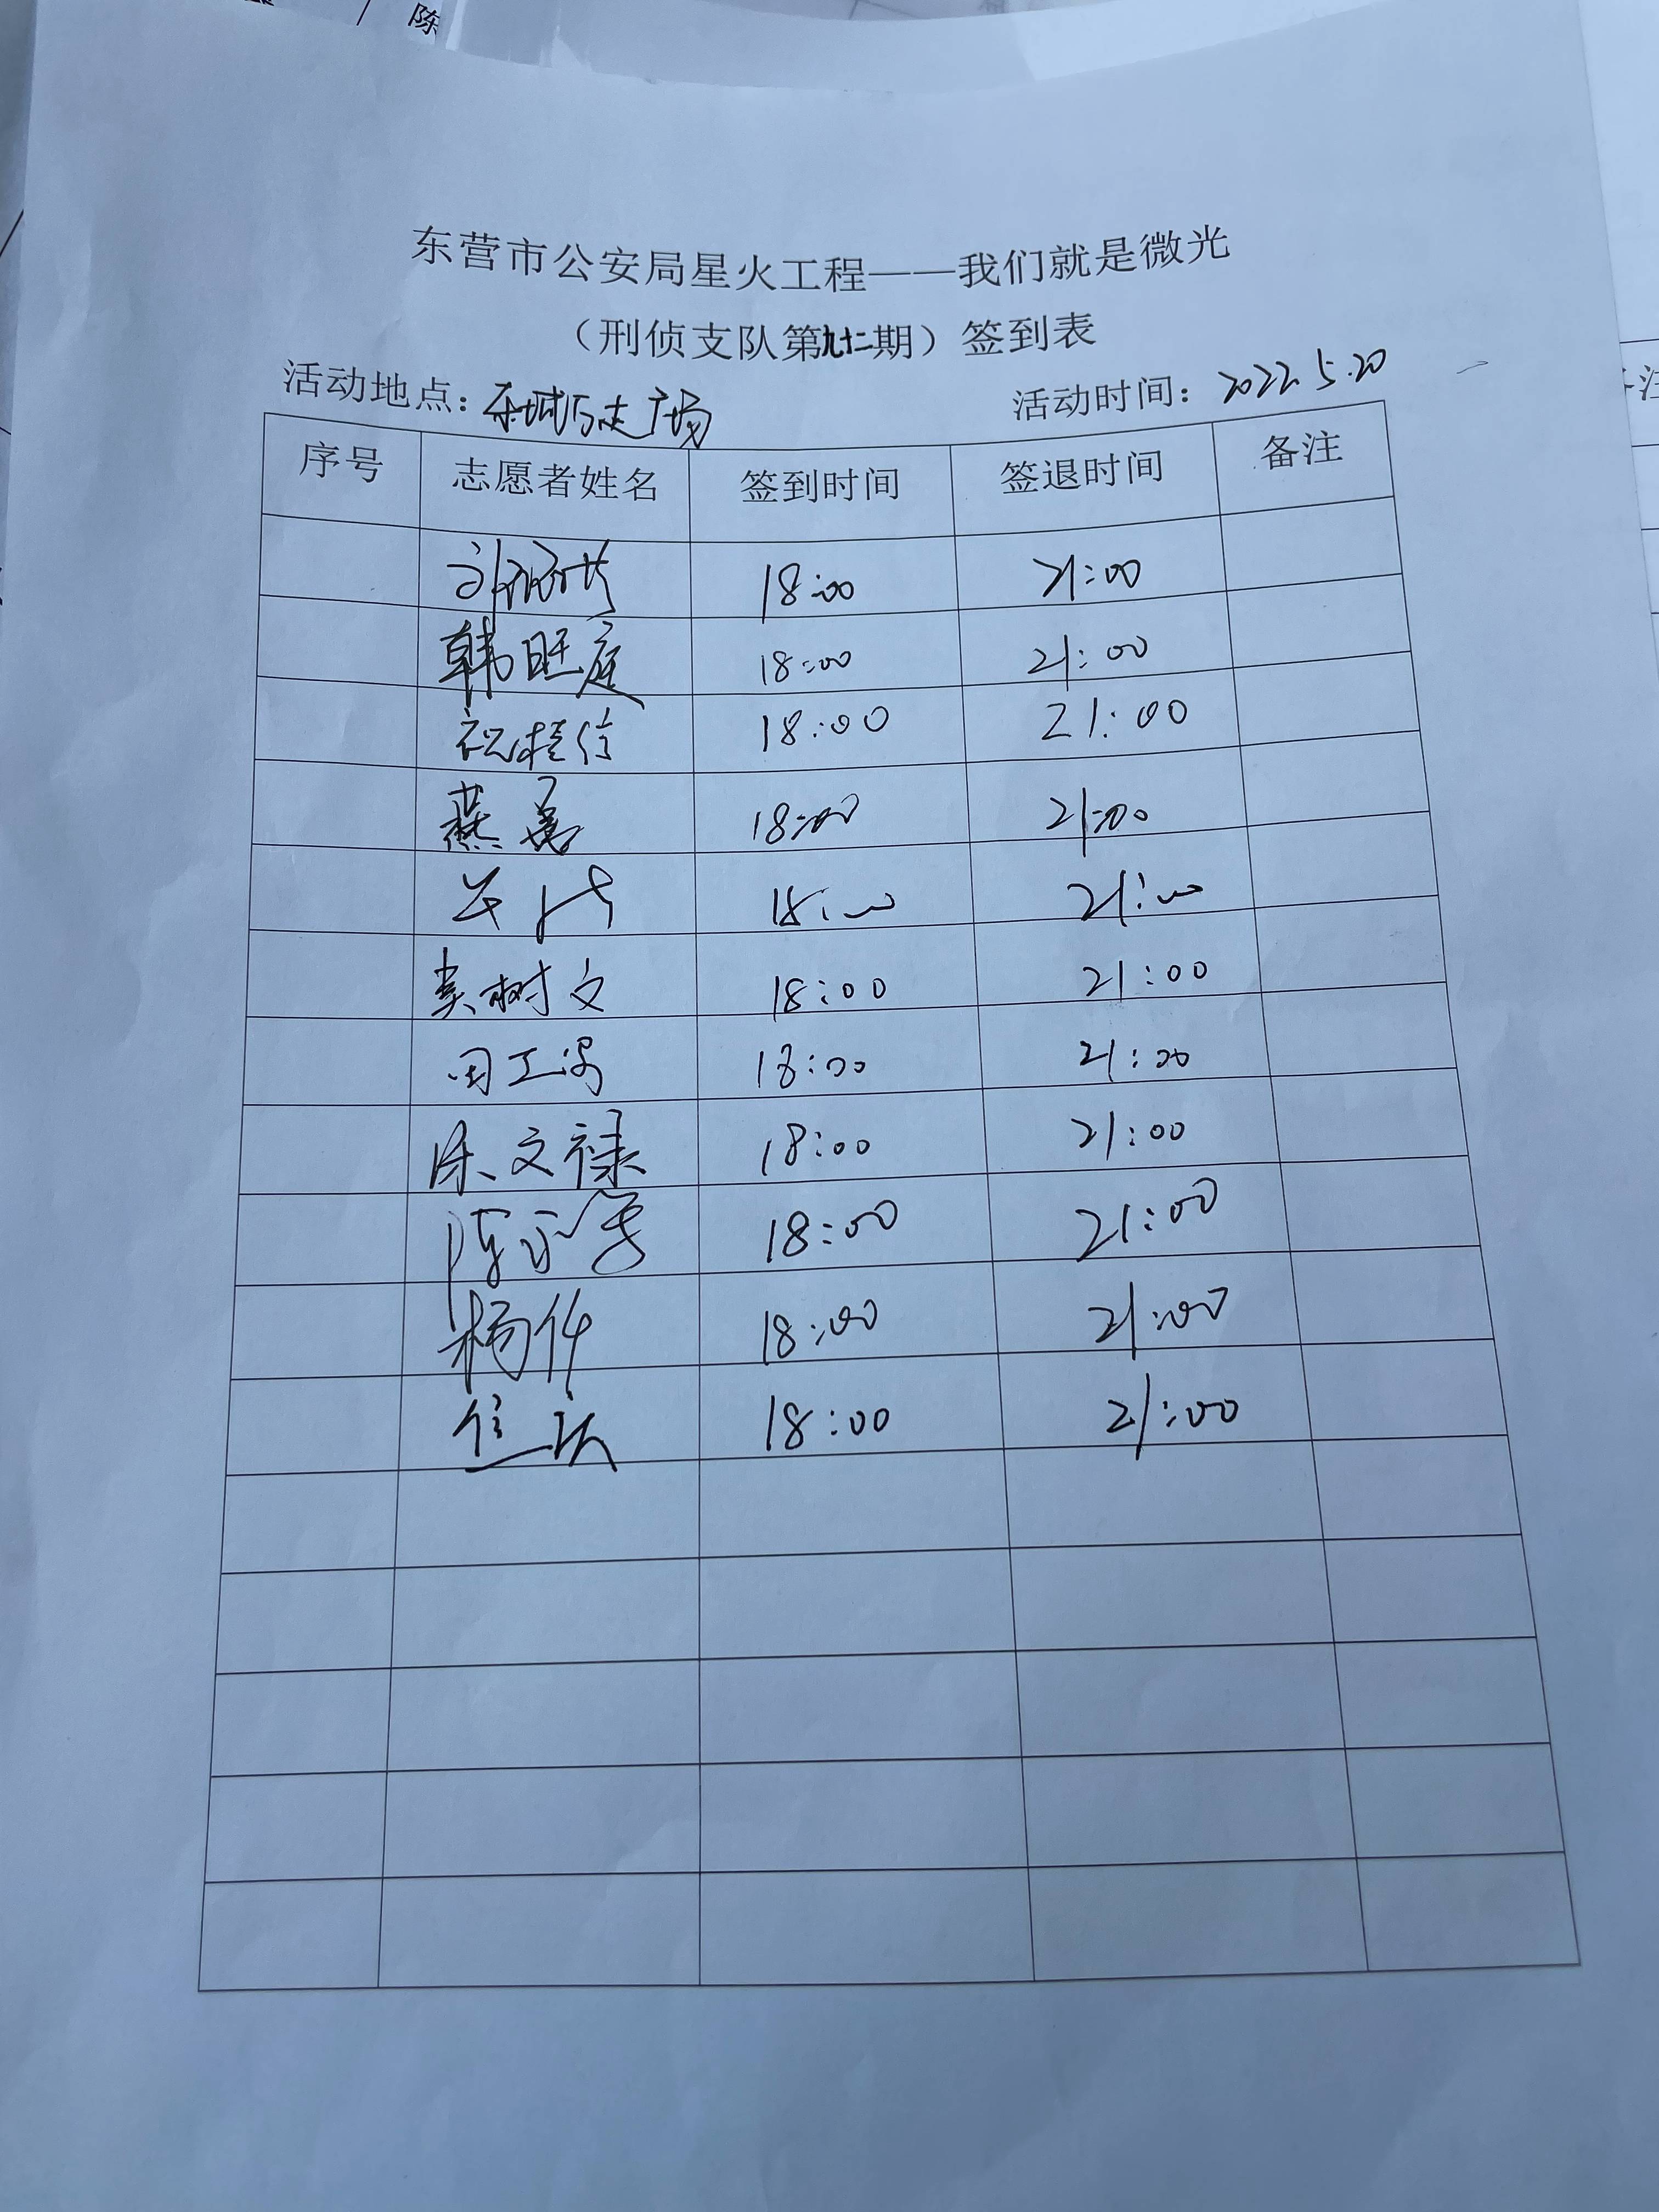 陈
东营市公安局星火工程——我们就是微光
（刑侦支队第九十二期）签到表
活动地点：东城万达广场 活动时间：2022.5.20
序号 志愿者姓名 签到时间 签退时间 备注
18:00 21:00
韩旺庭 18:00 21:00
祝桂信 18:00 21:00
燕勇 18:00 21:00
18:00 21:00
娄树文 18:00 21:00
18:00 21:00
陈文禄 18:00 21:00
18:00 21:00
杨伟 18:00 21:00
18:00 21:00